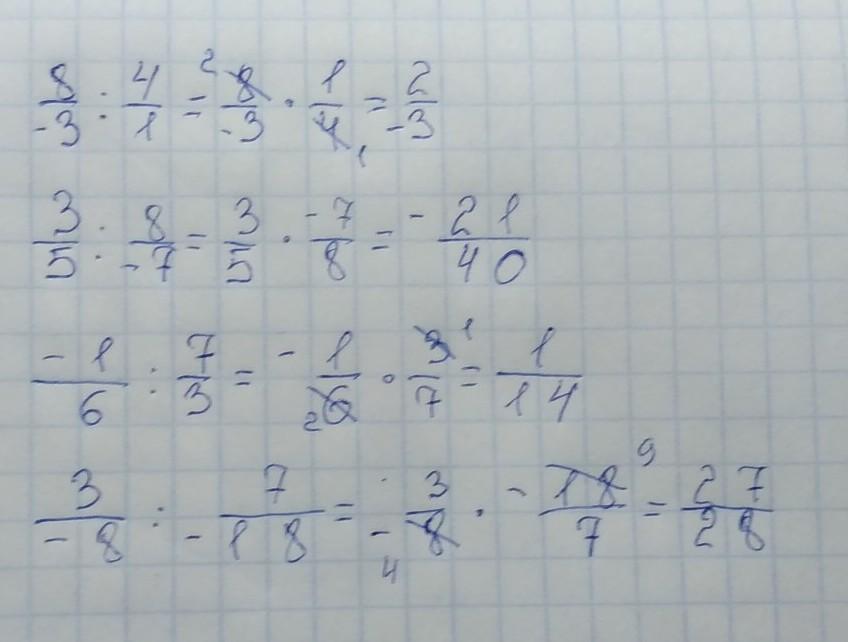 8/-3 : 4/1 = 8/-3 · 1/4 = 2/-3
3/5 : 8/-7 = 3/5 · -7/8 = -21/40
-1/6 : 7/3 = -1/6 · 3/7 = 1/14
3/-8 : 7/-18 = 3/-8 · -18/7 = 27/28